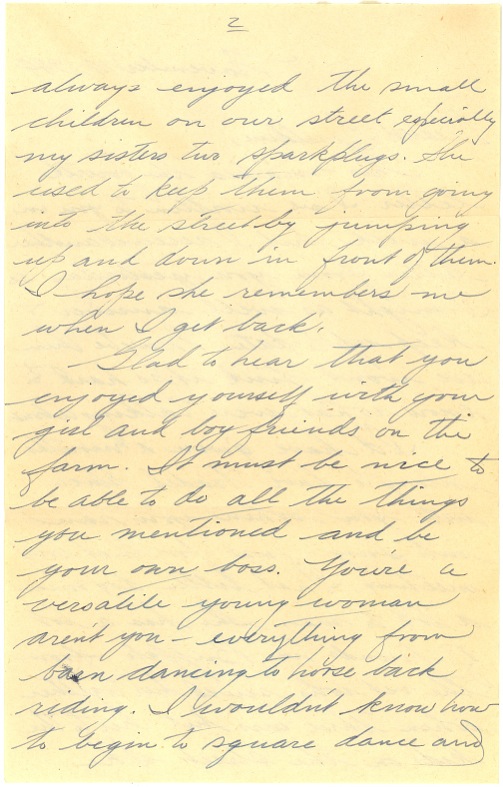 2
always enjoyed the small
children on our street especially
my sisters two sparkplugs. She
used to keep them from going
into the street by jumping
up and down in front of them.
I hope she remembers me
when I get back.
Glad to hear that you
enjoyed yourself with your
girl and boy friends on the
farm. It must be nice to
be able to do all the things
you mentioned and be
your own boss. You're a
versatile young woman
aren't you - everything from
barn dancing to horse back
riding. I wouldn't know how
to begin to square dance and